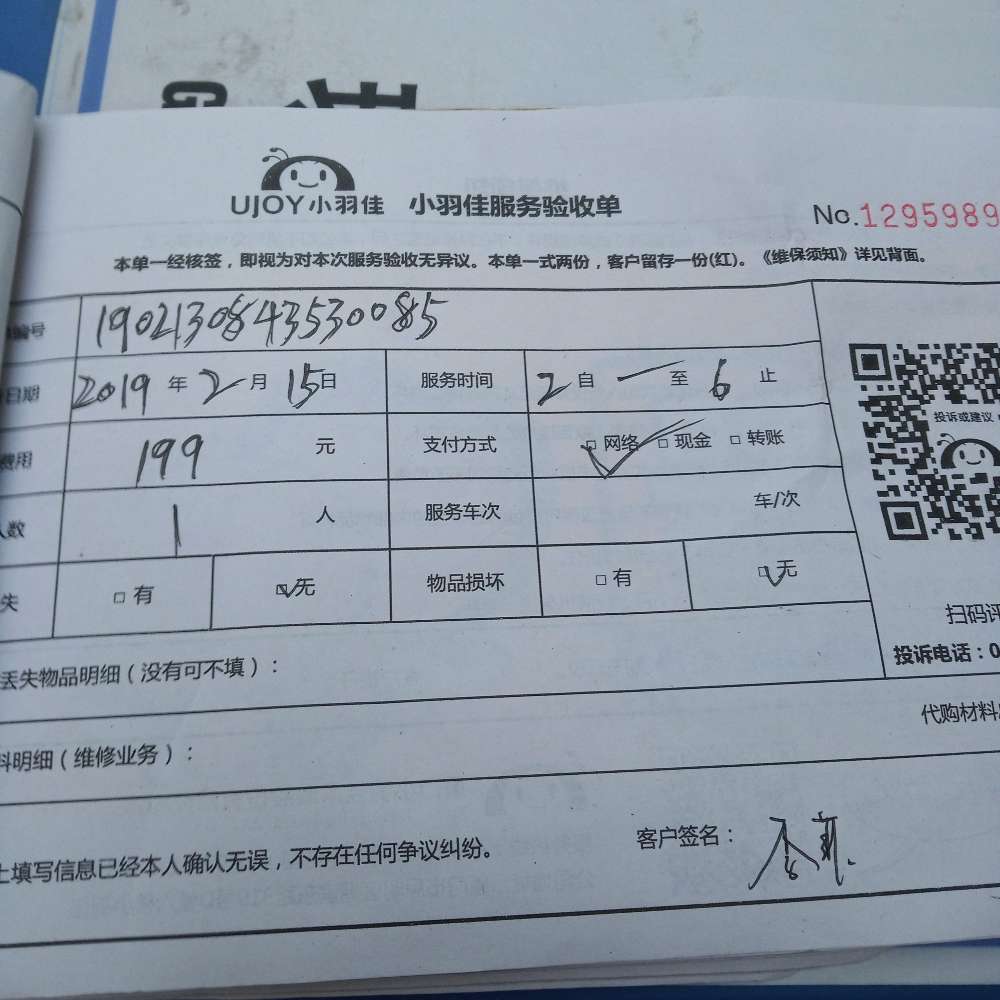 UJOY小羽佳 小羽佳服务验收单
No.1295989
本单一经核签，即视为对本次服务验收无异议。本单一式两份，客户留存一份(红)。《维保须知》详见背面。
编号 19021308435330085
日期 2019 年 2 月 15 日 服务时间 2 自 一 至 6 止
费用 199 元 支付方式 □ 网络 □ 现金 □ 转账
人数 1 人 服务车次 车/次
失 □ 有 □ 无 物品损坏 □ 有 □ 无
投诉或建议
扫码评
投诉电话：0
丢失物品明细（没有可不填）：
代购材料
料明细（维修业务）：
上填写信息已经本人确认无误，不存在任何争议纠纷。
客户签名：